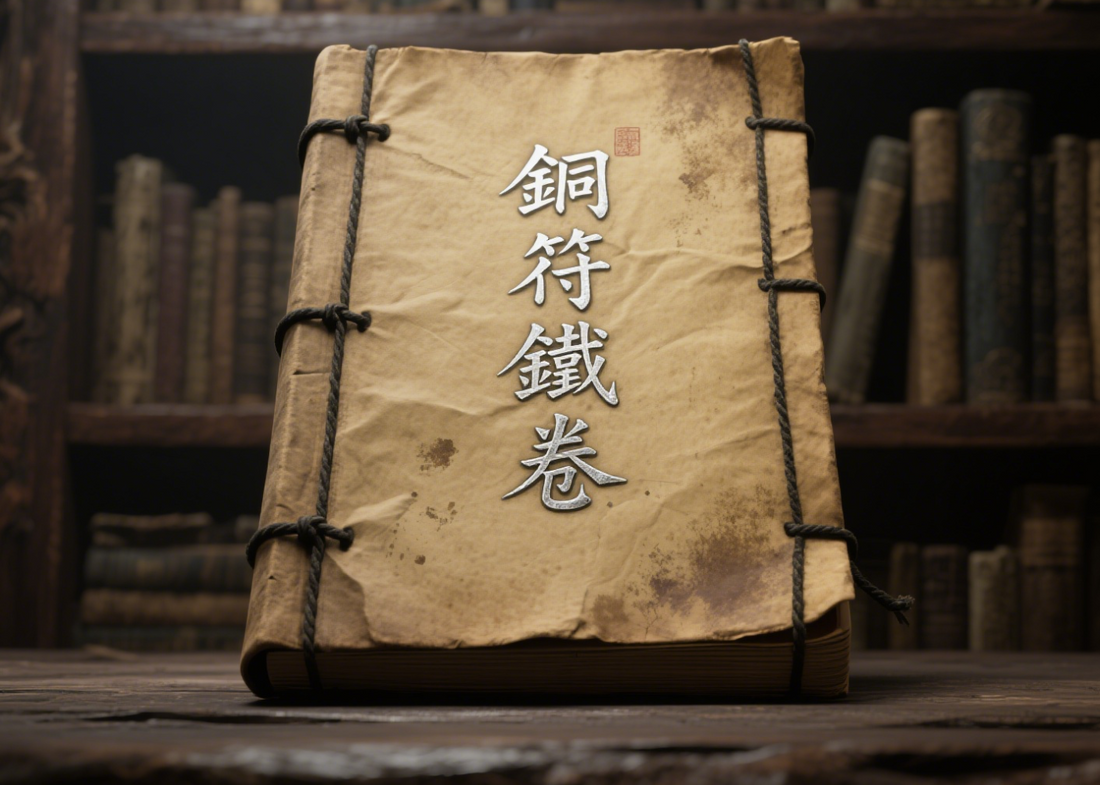 銅符鐵卷